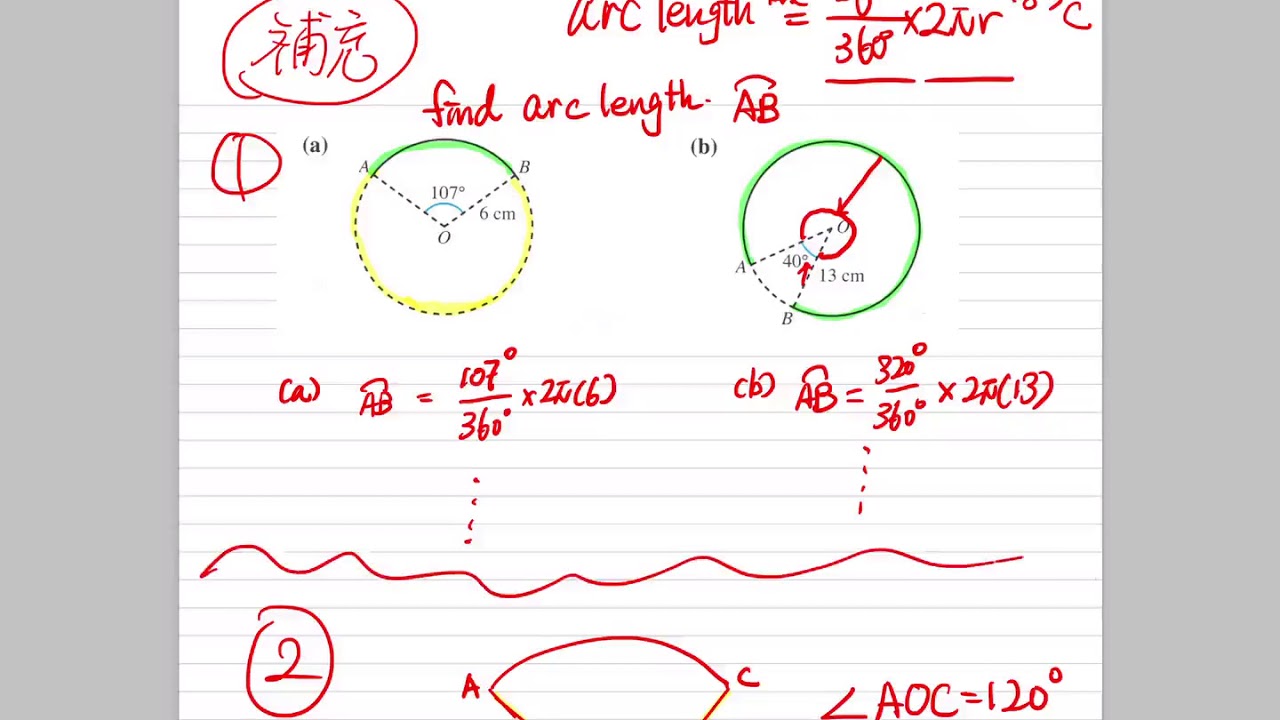 補充
arc length = /360° × 2πr
find arc length. AB
① (a) (b)
A B 107° 6 cm O
O A 40° 13 cm B
(a) AB = 107°/360° × 2π(6)
(b) AB = 320°/360° × 2π(13)
②
A C ∠AOC=120°